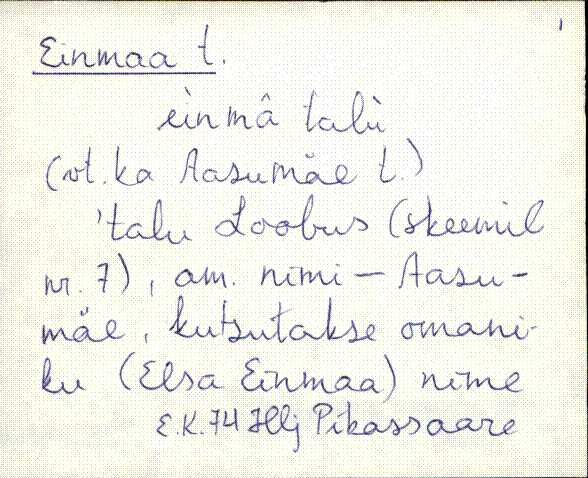 1
Einmaa t.
èinmâ talù
(vt. ka Aasumäe t.)
'talu Loobus (skeemil
nr. 7), am. nimi – Aasu-
mäe, kutsutakse omani-
ku (Elsa Einmaa) nime
E.K. 74 Hlj Pikassaare